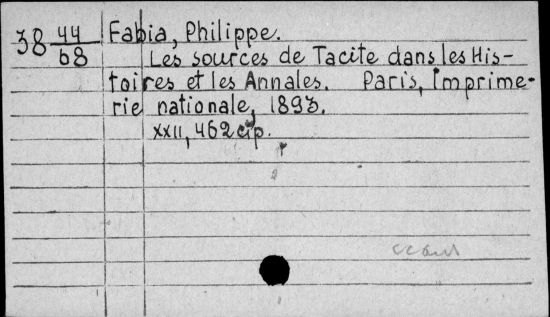 38 44/68 Fabia, Philippe.
Les sources de Tacite dans les His-
toires et les Annales. Paris, Imprime-
rie nationale, 1893.
XXII, 462 p.